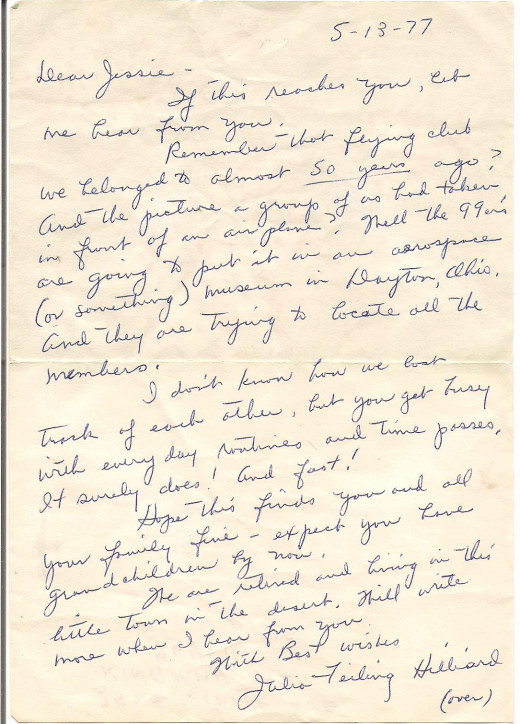 5-13-77
Dear Jessie -
If this reaches you, let
me hear from you.
Remember that flying club
we belonged to almost 50 years ago?
And the picture a group of us had taken
in front of an airplane? Well the 99ers
are going to put it in an aerospace
(or something) museum in Dayton, Ohio.
And they are trying to locate all the
members.
I don't know how we lost
track of each other, but you get busy
with every day routines and time passes.
It surely does! And fast!
Hope this finds you and all
your family fine - expect you have
grandchildren by now.
We are retired and living in this
little town in the desert. Will write
more when I hear from you.
With Best wishes
Julia Teiling Hilliard
(over)